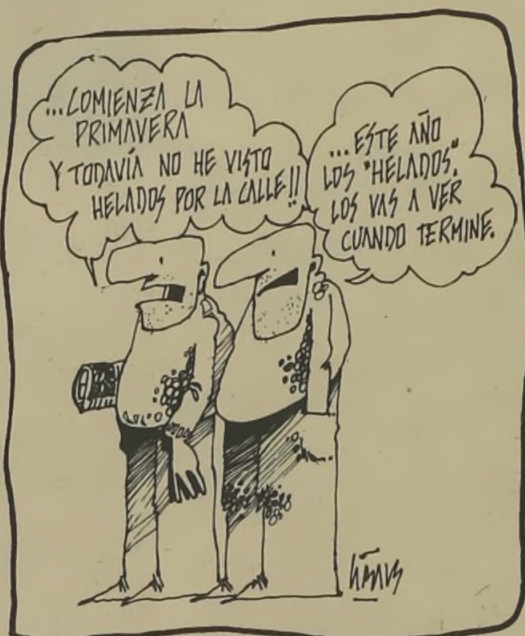 ...COMIENZA LA
PRIMAVERA
Y TODAVÍA NO HE VISTO
HELADOS POR LA CALLE!!
...ESTE AÑO
LOS "HELADOS".
LOS VAS A VER
CUANDO TERMINE.